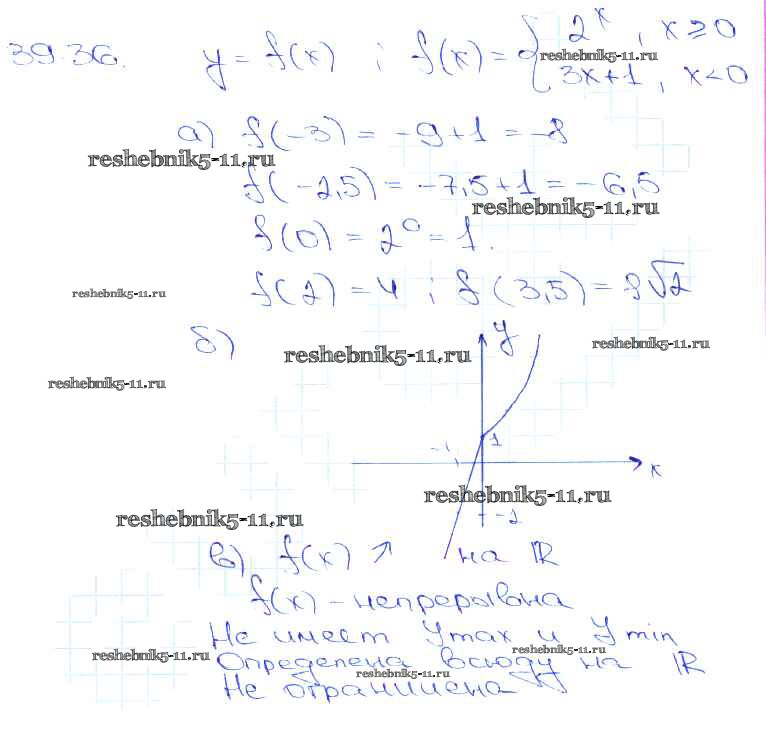 39.36. y = f(x) ; f(x) = { 2^x, x ≥ 0
reshebnik5-11.ru
3x+1, x < 0
а) f(-3) = -9+1 = -8
reshebnik5-11.ru
f(-2,5) = -7,5+1 = -6,5
reshebnik5-11.ru
f(0) = 2^0 = 1.
reshebnik5-11.ru
f(2) = 4 ; f(3,5) = 8√2
б)
y
reshebnik5-11.ru
reshebnik5-11.ru
reshebnik5-11.ru
1
-1
x
reshebnik5-11.ru
-2
reshebnik5-11.ru
в) f(x) ↗ на ℝ
f(x) - непрерывна
Не имеет y max и y min
reshebnik5-11.ru
reshebnik5-11.ru
Определена всюду на ℝ
reshebnik5-11.ru
Не ограничена